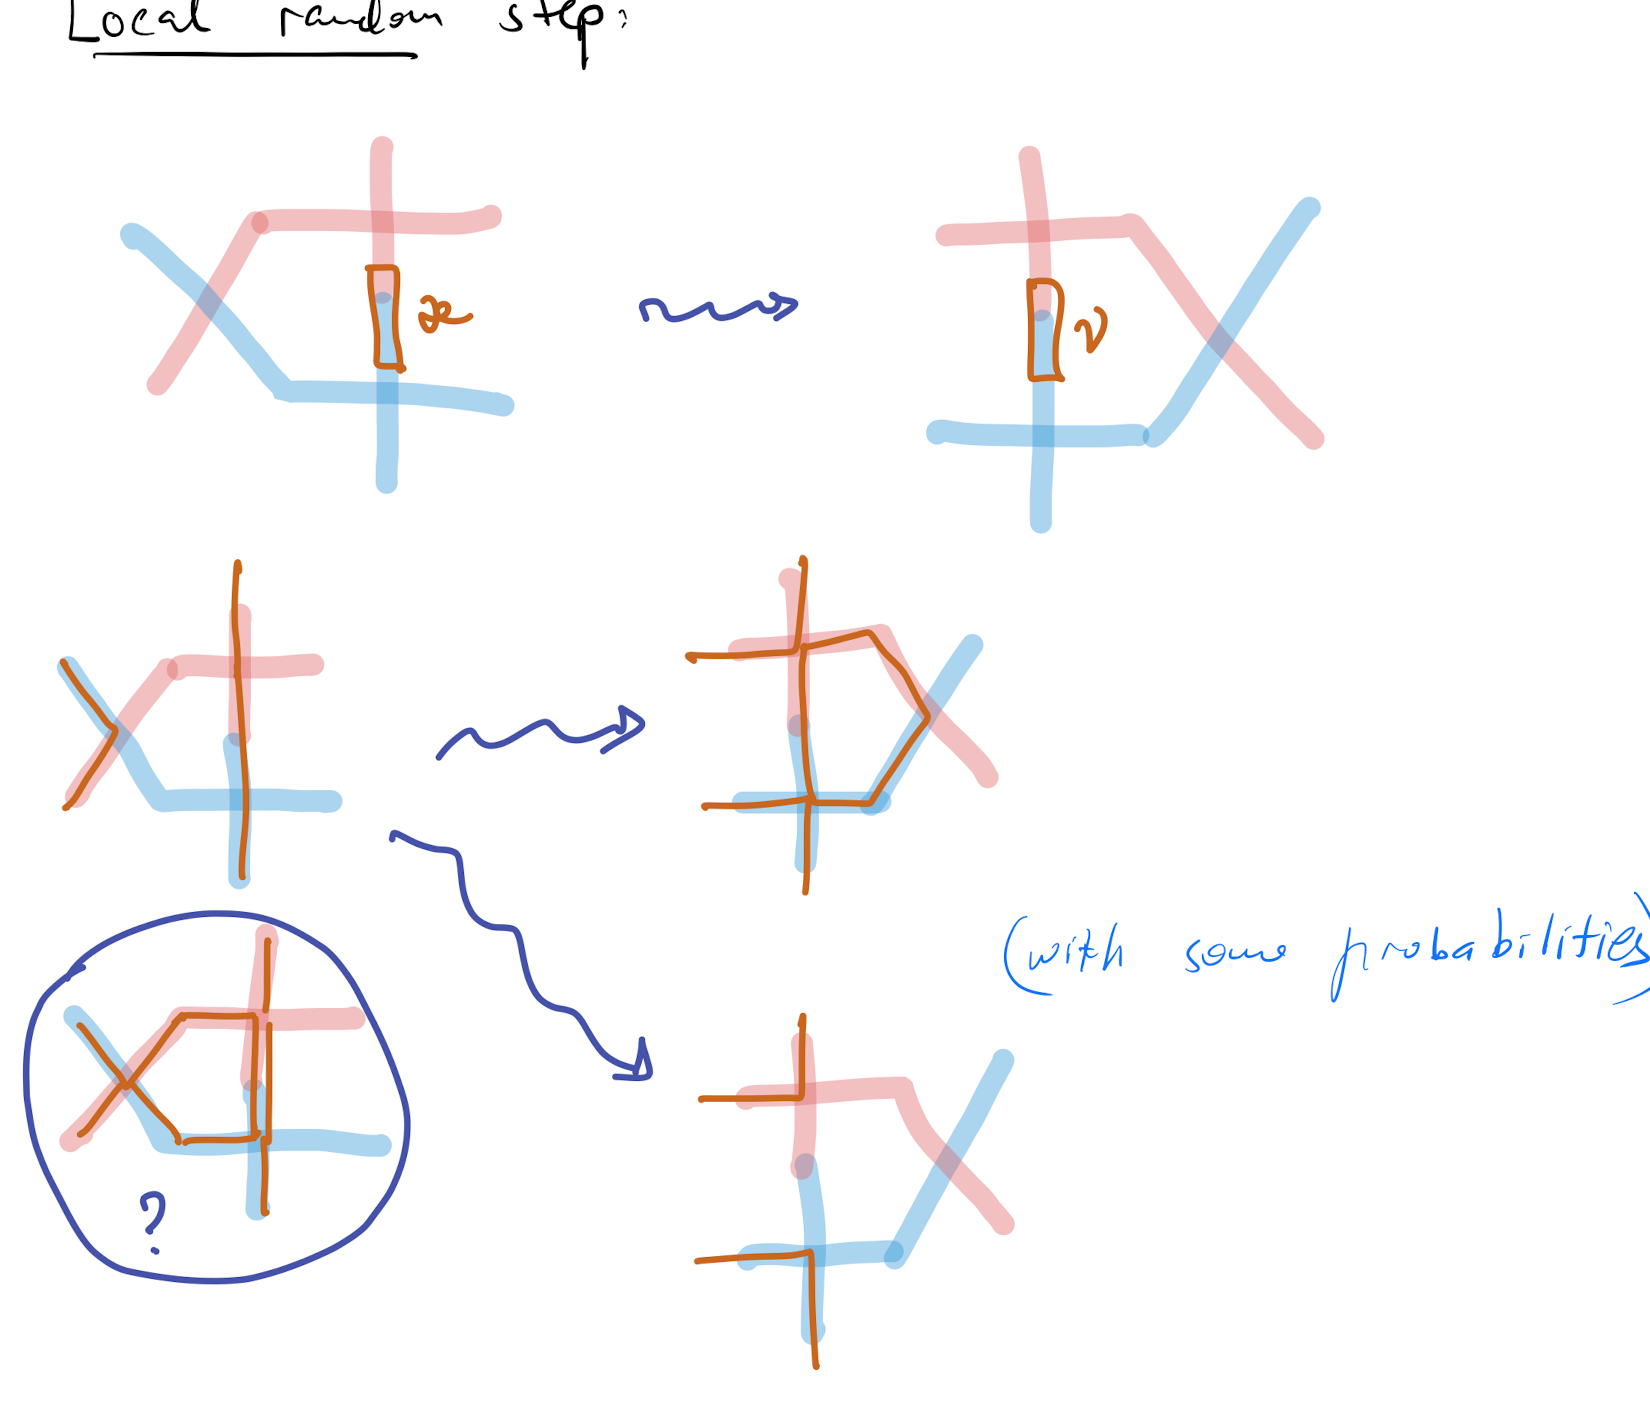 Local random step:
æ
ν
(with some probabilities)
?